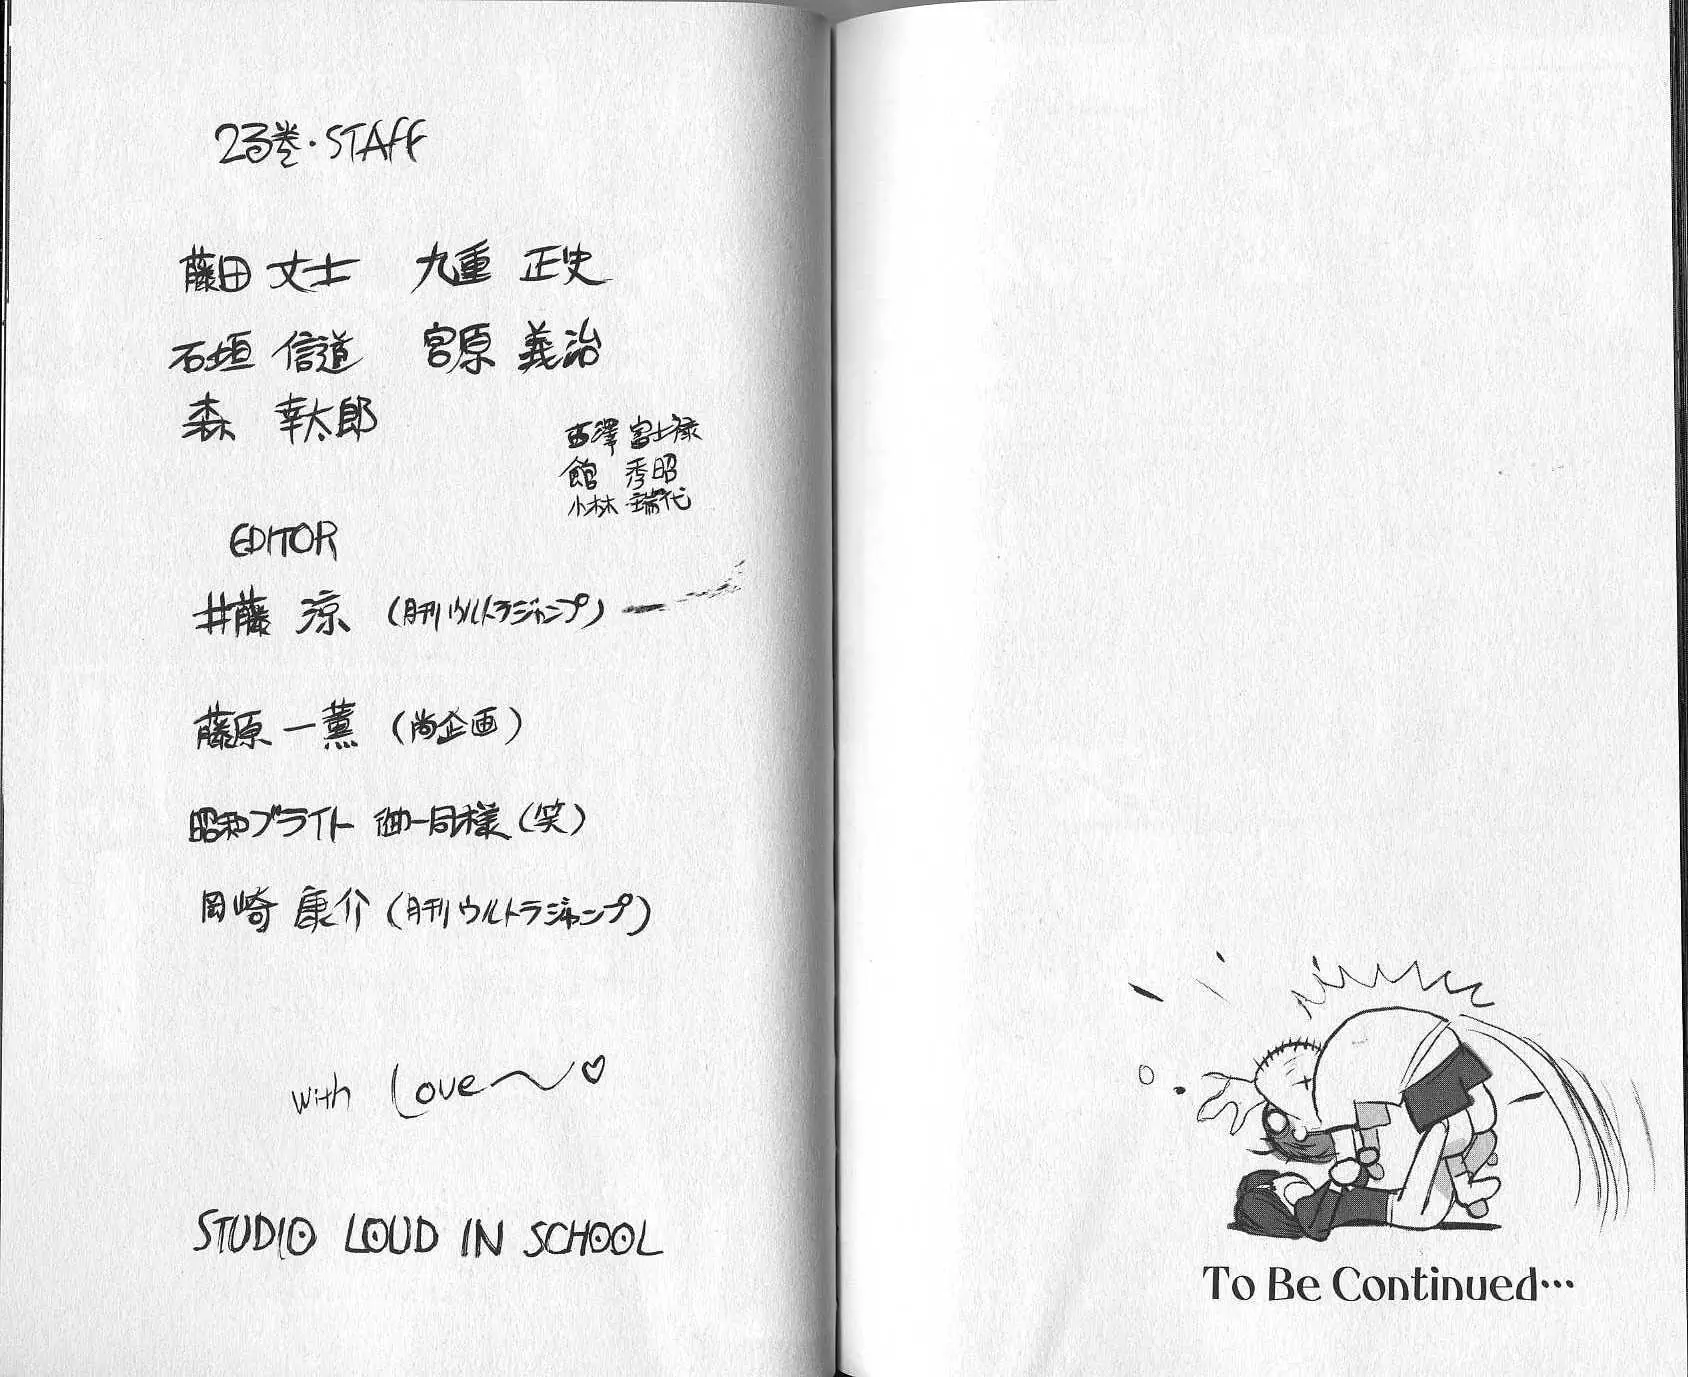 23巻・STAFF
藤田 丈士 九重 正史
石垣 信道 宮原 義治
森 幸太郎
西澤 富士禄
館 秀昭
小林 瑞代
EDITOR
井藤 涼 (月刊ウルトラジャンプ)
藤原 一薫 (尚企画)
昭和ブライト 御一同様(笑)
岡崎 康介 (月刊ウルトラジャンプ)
with Love〜♡
STUDIO LOUD IN SCHOOL
To Be Continued…